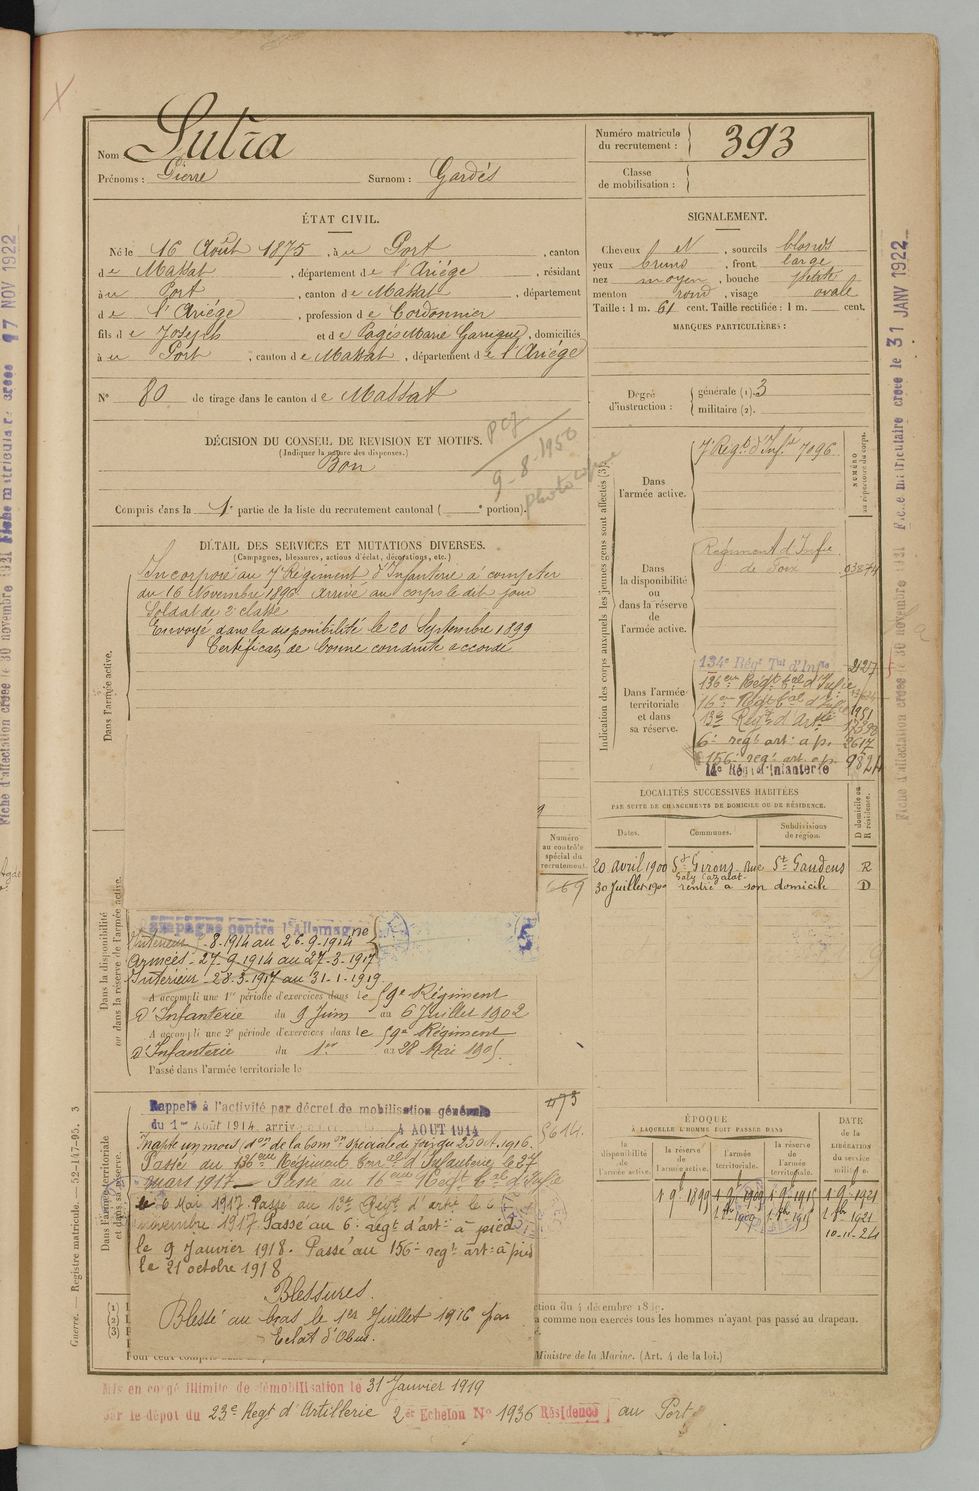 Nom : Sutra
Prénoms : Pierre Surnom : Gardès
Numéro matricule du recrutement : 393
Classe de mobilisation :
ÉTAT CIVIL.
Né le 16 Août 1875, à u Port, canton
de Massat, département de l'Ariége, résidant
à u Port, canton de Massat, département
de l'Ariége, profession de Cordonnier
fils de Joseph et de Pagés Marie Garrigue, domiciliés
à u Port, canton de Massat, département de l'Ariége
N° 80 de tirage dans le canton de Massat
SIGNALEMENT.
Cheveux N, sourcils blonds
yeux bruns, front large
nez moyen, bouche petite
menton rond, visage ovale
Taille : 1 m. 61 cent. Taille rectifiée : 1 m. cent.
MARQUES PARTICULIÈRES :
Degré d'instruction : générale (1). 3
militaire (2).
DÉCISION DU CONSEIL DE REVISION ET MOTIFS.
(Indiquer la nature des dispenses.)
Bon
9-8-1950
Compris dans la 1e partie de la liste du recrutement cantonal ( e portion).
DÉTAIL DES SERVICES ET MUTATIONS DIVERSES.
(Campagnes, blessures, actions d'éclat, décorations, etc.)
Dans l'armée active.
Incorporé au 7e Régiment d'Infanterie à compter
du 16 Novembre 1896. Arrivé au corps le dit jour
Soldat de 2e classe
Envoyé dans la disponibilité le 20 Septembre 1899
Certificat de bonne conduite accordé
Indication des corps auxquels les jeunes gens sont affectés (3)
NUMÉRO au répertoire du corps.
Dans l'armée active.
7e Régt d'Infie 7096
Dans la disponibilité ou dans la réserve de l'armée active.
Régiment d'Infie
de Foix 03874
Dans l'armée territoriale et dans sa réserve.
134e Régt Tal d'Infie 2127
136eme Régt tal d'Infie
16eme Régt tal d'Infie 1951
13e Régt d'Artie
6e regt art. à p. 2617
156e regt art. à p. 9824
14e Régt d'Infanterie
LOCALITÉS SUCCESSIVES HABITÉES
PAR SUITE DE CHANGEMENTS DE DOMICILE OU DE RÉSIDENCE.
Dates. Communes. Subdivisions de région. D domicile ou R résidence.
20 Avril 1900 St Girons Rue St Gaudens R
Galy Cazalat.
30 Juillet 1900 rentré à son domicile D
Numéro au contrôle spécial du recrutement.
669
Dans la disponibilité ou dans la réserve de l'armée active.
Campagne contre l'Allemagne
Intérieur -8-1914 au 26-9-1914
Armées - 27-9-1914 au 27-3-1917
Intérieur - 28-3-1917 au 31-1-1919
A accompli une 1re période d'exercices dans le 59e Régiment
d'Infanterie du 9 Juin au 6 Juillet 1902
A accompli une 2e période d'exercices dans le 59e Régiment
d'Infanterie du 1er au 28 Mai 1905.
Passé dans l'armée territoriale le
Dans l'armée territoriale et dans sa réserve.
Rappelé à l'activité par décret de mobilisation générale
du 1er Août 1914 arrivé 4 AOUT 1914
Inapte un mois, don de la Comon spéciale de Foix du 25 oct. 1916.
Passé au 136eme Régiment Terral d'Infanterie le 27
mars 1917 — Passé au 16eme Regt Tal d'Infie
le 6 Mai 1917. Passé au 13e Régt d'artie le 6
novembre 1917 Passé au 6e regt d'arte à pied
le 9 Janvier 1918. Passé au 156e regt arte à pied
le 21 octobre 1918
Blessures.
Blessé au bras le 1er Juillet 1916 par
Eclat d'Obus.
473
5614
ÉPOQUE
À LAQUELLE L'HOMME DOIT PASSER DANS
la disponibilité de l'armée active. la réserve de l'armée active. l'armée territoriale. la réserve de l'armée territoriale.
DATE de la LIBÉRATION du service militaire.
1 9e 1899 1 9e 1909 1 9e 1915 1 9e 1921
1 8bre 1909 1 8bre 1915 1 8bre 1921
10-11-24
ction du 4 décembre 18
a comme non exercés tous les hommes n'ayant pas passé au drapeau.
Ministre de la Marine. (Art. 4 de la loi.)
Mis en congé illimité de démobilisation le 31 Janvier 1919
par le dépot du 23e Regt d'Artillerie 2er Echelon N° 1936 Résidence au Port
Guerre. — Registre matricule. — 52-147-95. 3
17 NOV 1922
Fiche d'affectation créée le 30 novembre 1921 Fiche matriculaire créée le 31 JANV 1922